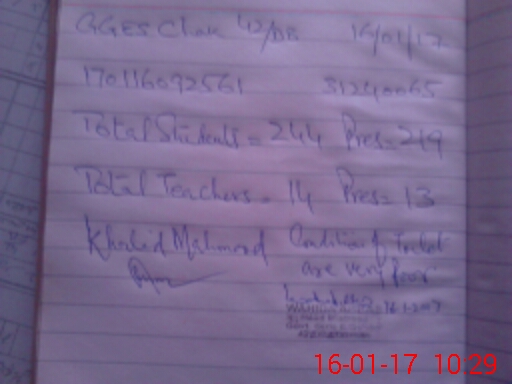 GGES Chak 42/DB 16/01/17
170116092561 31240065
Total Students = 244 Pres = 219
Total Teachers = 14 Pres = 13
Khalid Mahmood Condition of Toilet
are very Poor
16-01-17 10:29